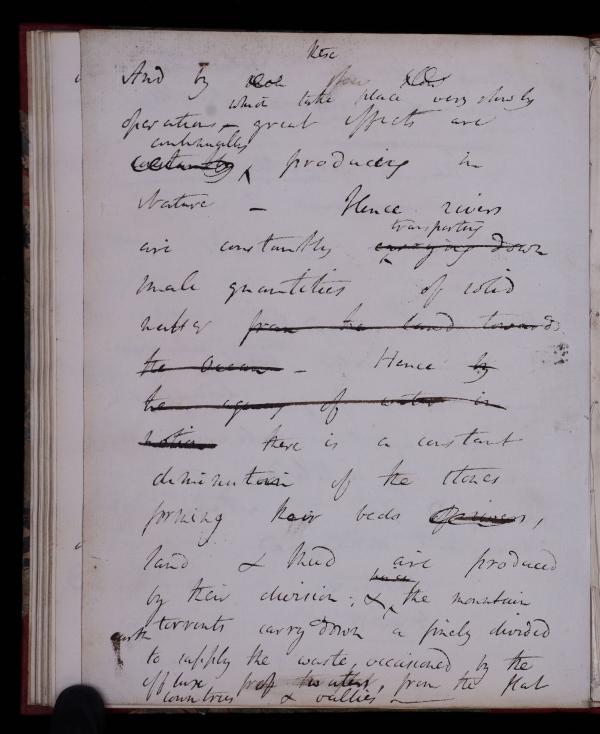 these
And by
which take place very slowly
operations great effects are
continually
constantly producing in
Nature – Hence rivers
transporting
are constantly carrying down
small quantities of solid
matter from the land towards
the Ocean – Hence by
the agency of water in
motion there is a constant
diminution of the stones
forming their beds of rivers,
land & Mud are produced
by their division; & the mountain
torrents carry down a finely divided
earth
to supply the waste, occasioned by the
efflux of waters, from the flat
countries & vallies –